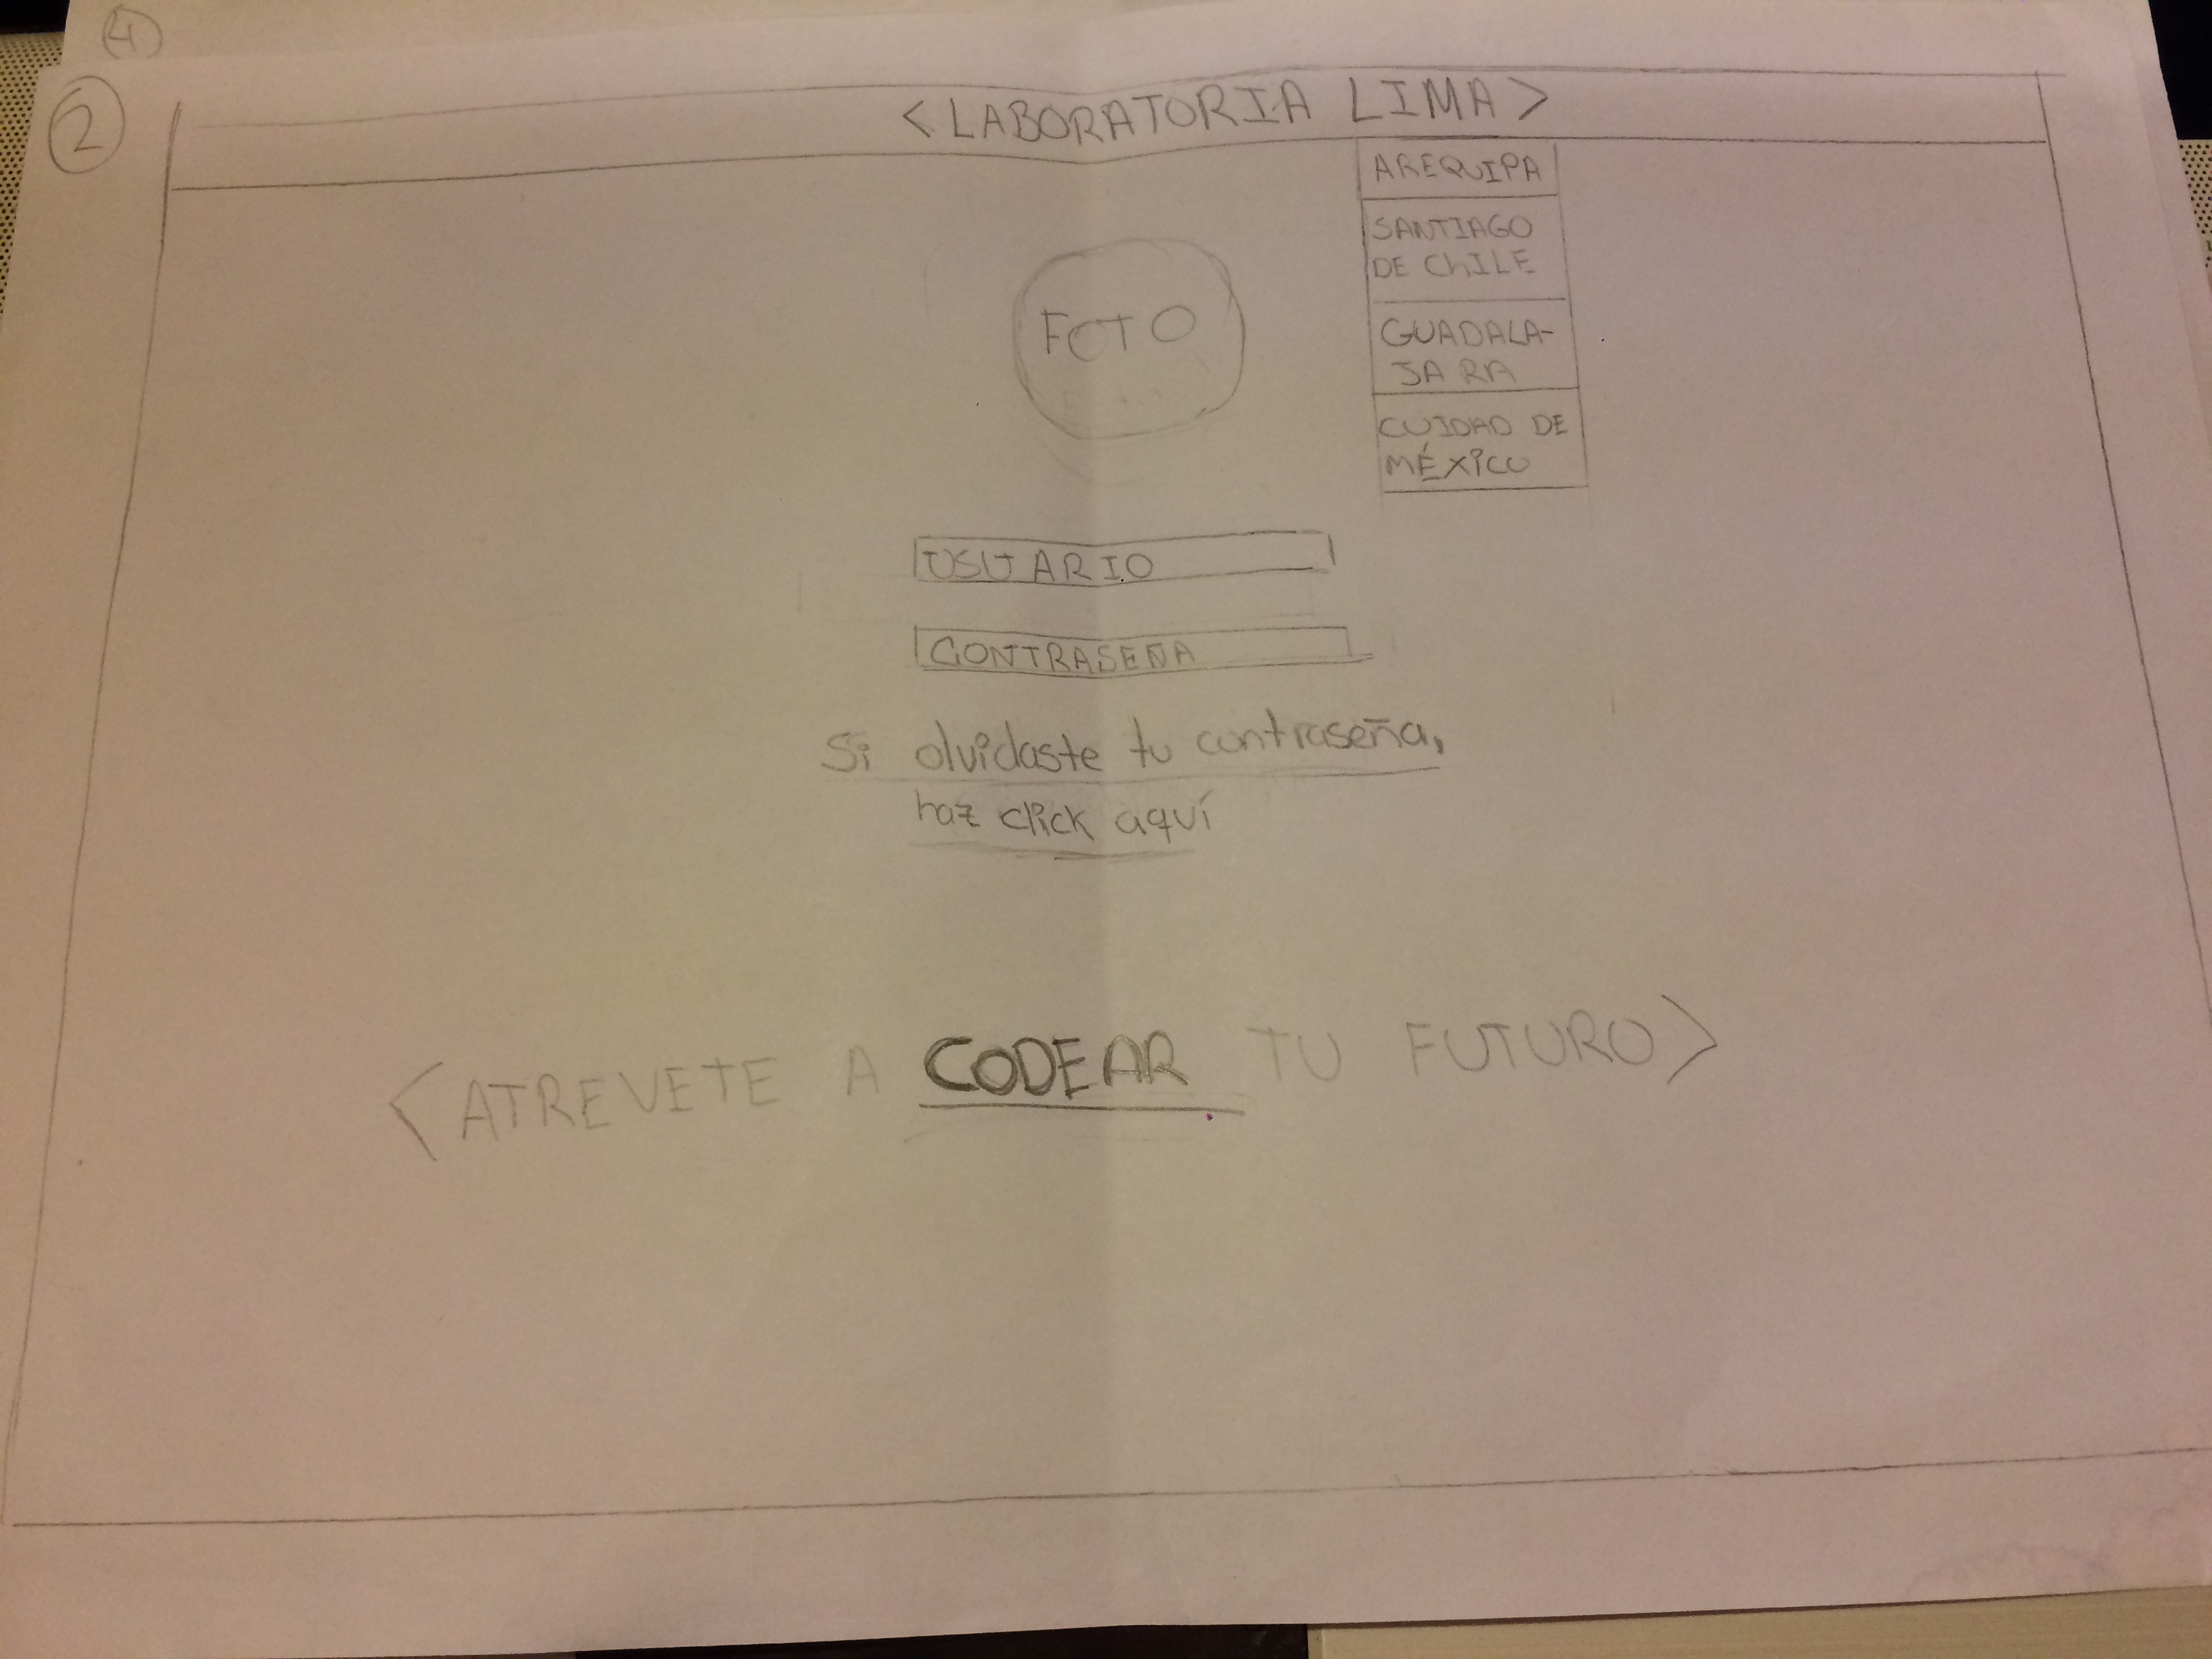 4
2
<LABORATORIA LIMA>
AREQUIPA
SANTIAGO
DE ChILE
GUADALA-
JARA
CUIDAD DE
MÉXICO
FOTO
USUARIO
CONTRASEÑA
Si olvidaste tu contraseña,
haz click aquí
<ATREVETE A CODEAR TU FUTURO>